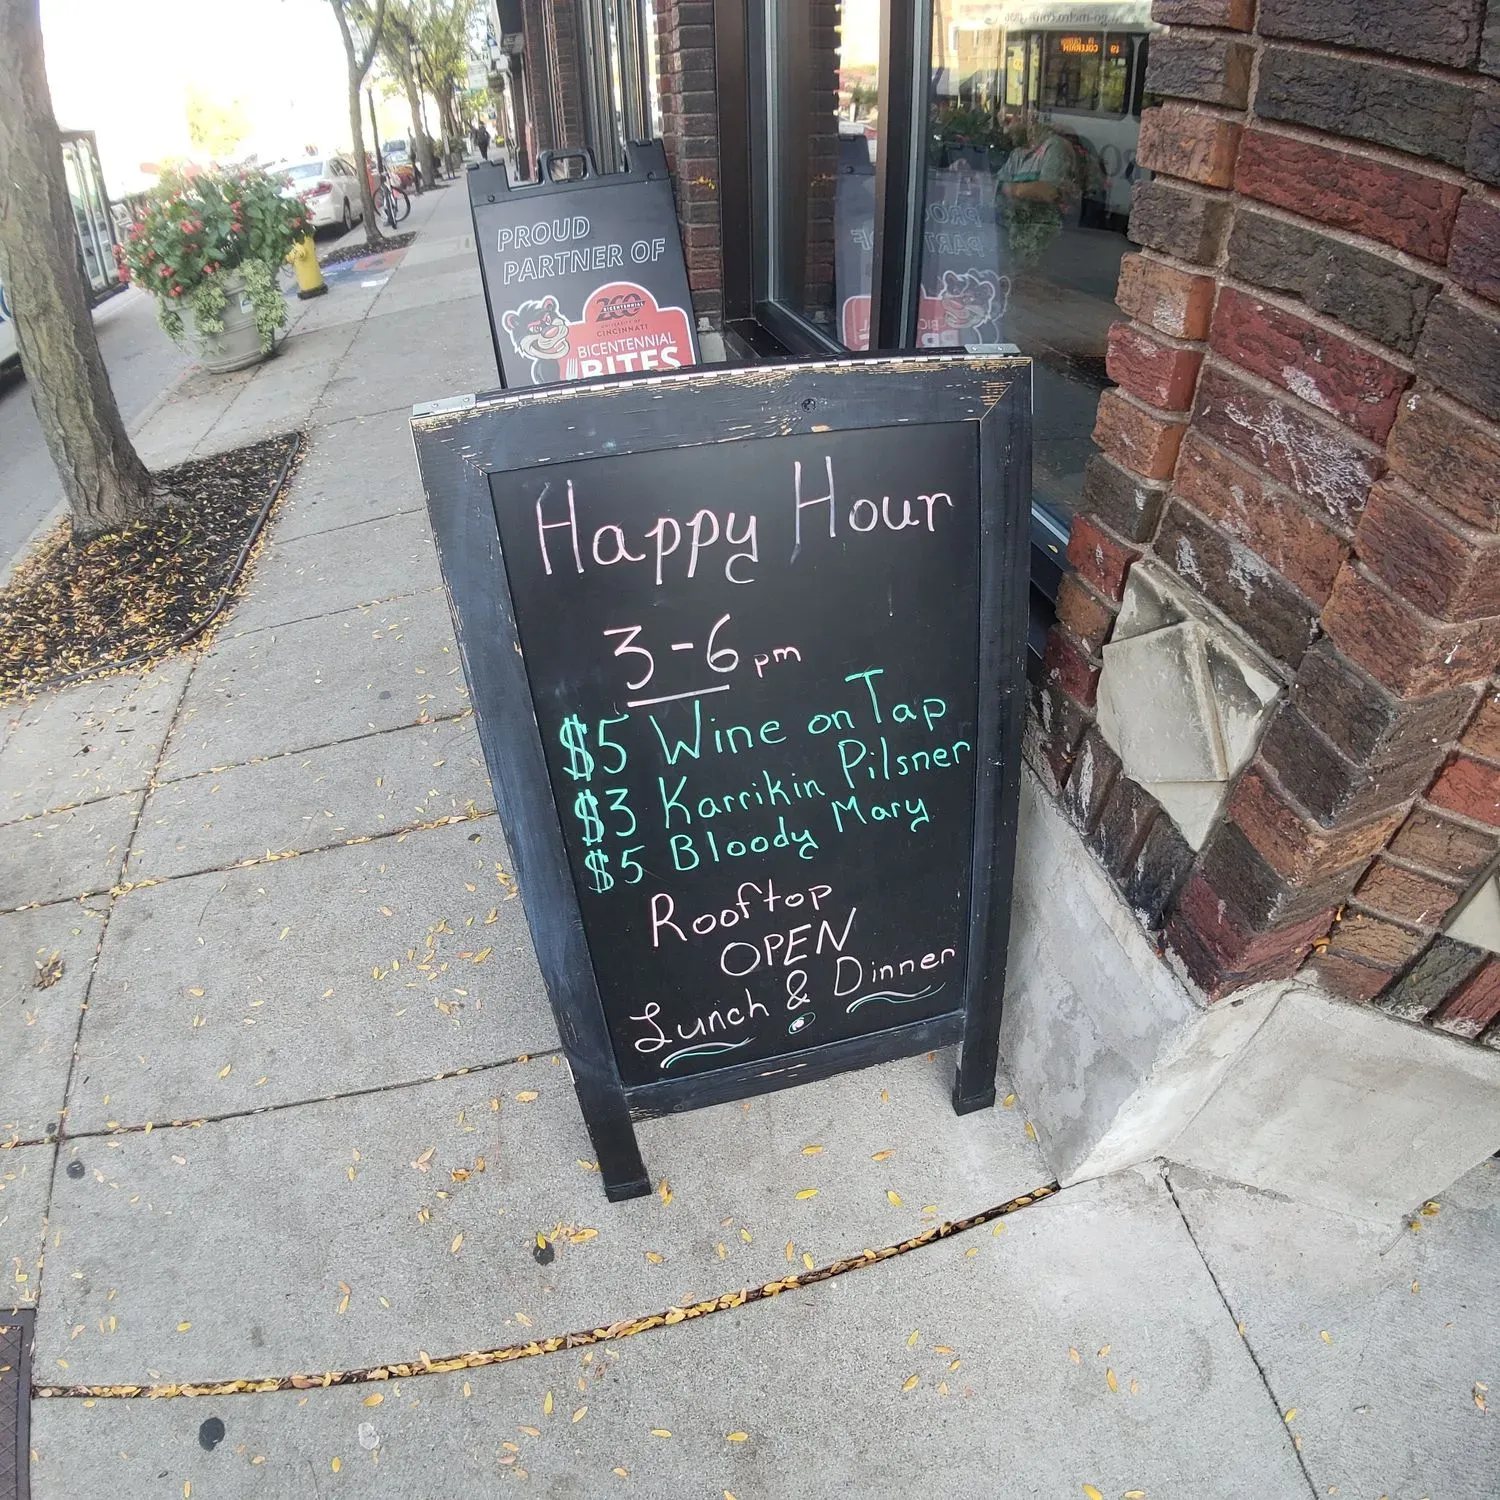 PROUD
PARTNER OF
200
BICENTENNIAL
UNIVERSITY OF
CINCINNATI
BICENTENNIAL
BITES
Happy Hour
3-6 pm
$5 Wine on Tap
$3 Karrikin Pilsner
$5 Bloody Mary
Rooftop
OPEN
Lunch & Dinner